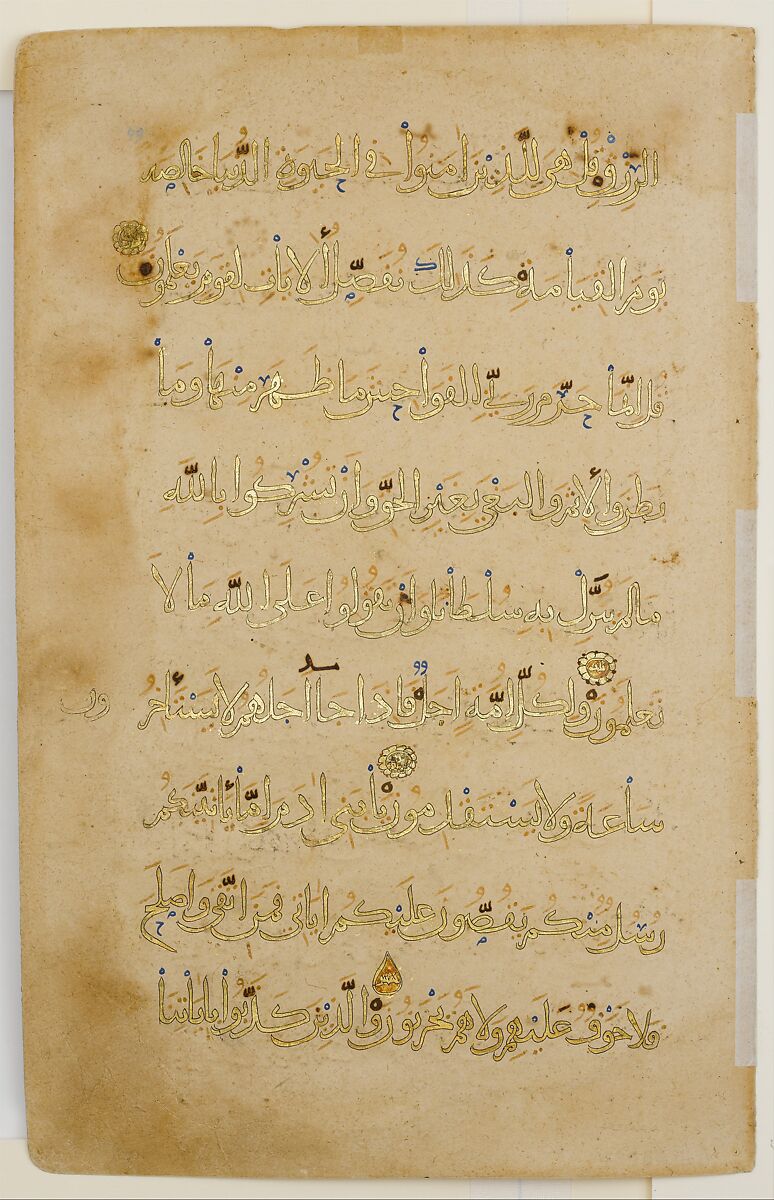 الرزق قل هي للذين امنوا في الحيوة الدنيا خالصة
يوم القيامة كذلك نفصل الايات لقوم يعلمون
قل انما حرم ربي الفواحش ما ظهر منها وما
بطن والاثم والبغي بغير الحق وان تشركوا بالله
ما لم ينزل به سلطانا وان تقولوا على الله ما لا
تعلمون ولكل امة اجل فاذا جا اجلهم لا يستاخر
ساعة ولا يستقدمون يا بني ادم اما ياتينكم
رسل منكم يقصون عليكم اياتي فمن اتقى واصلح
فلا خوف عليهم ولا هم يحزنون والذين كذبوا باياتنا